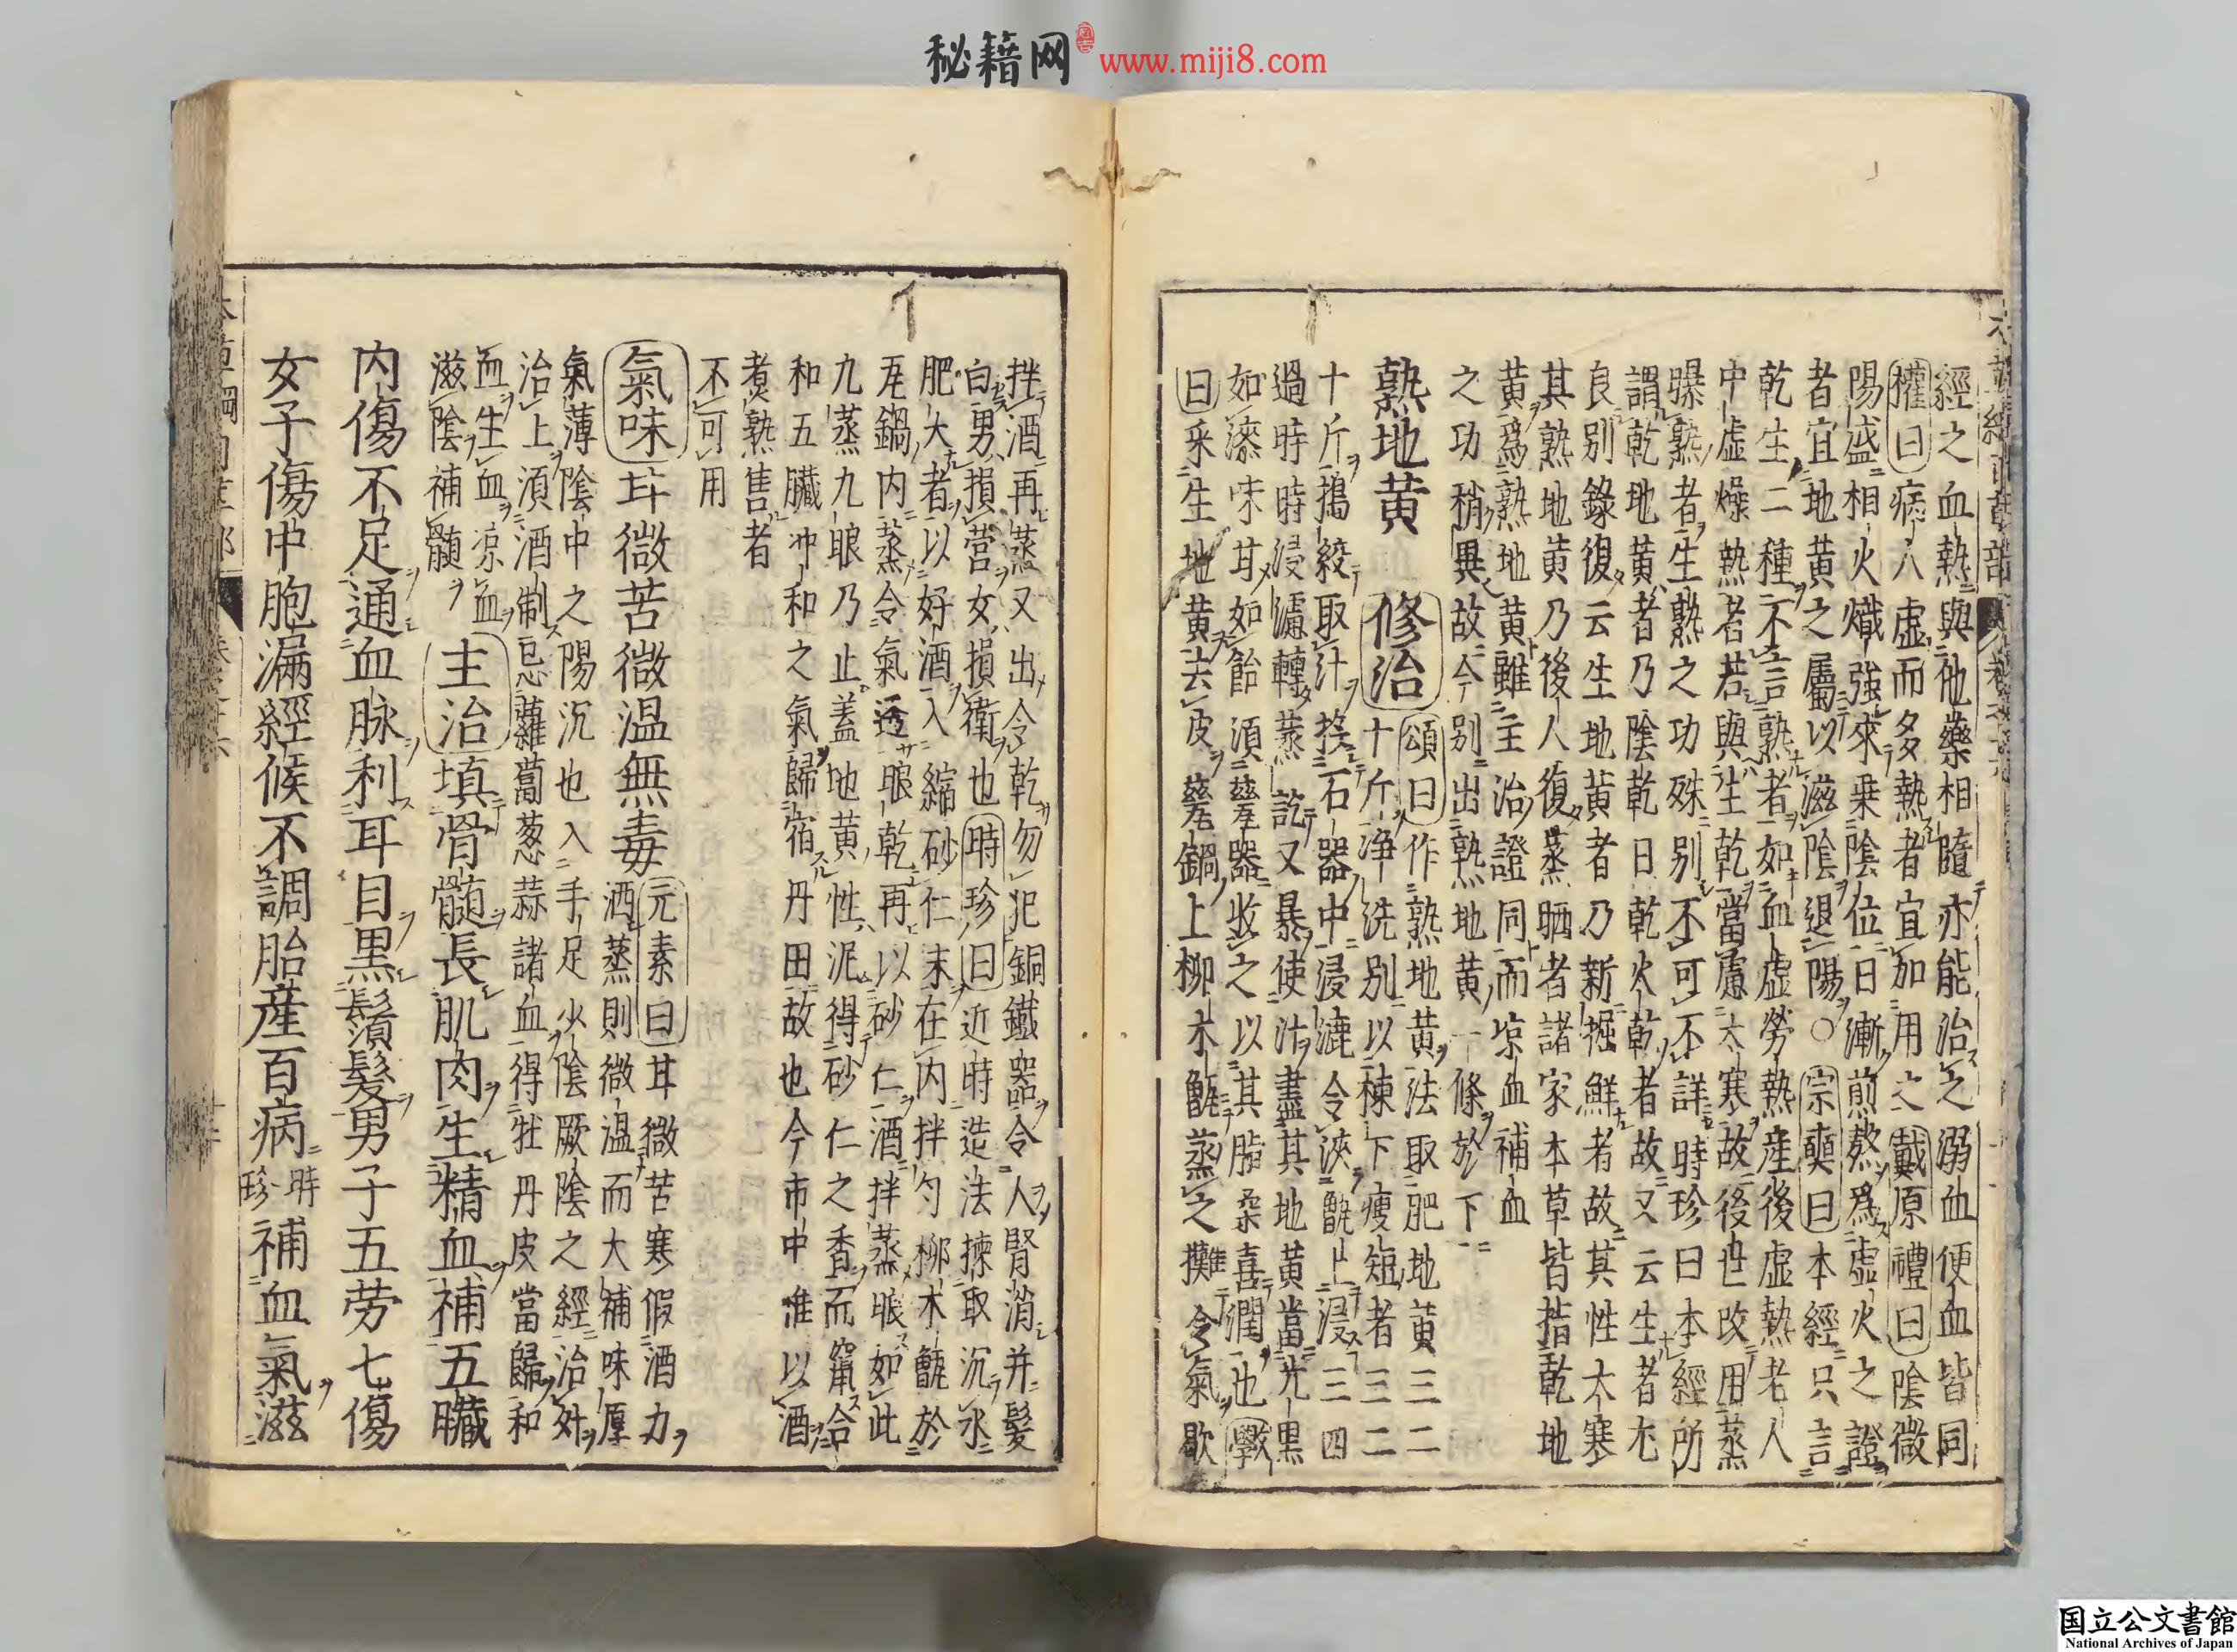 秘籍网 www.miji8.com
經之血熱與他藥相隨亦能治之溺血便血皆同
權曰病人虛而多熱者宜加用之戴原禮曰陰微
陽盛相火熾強來乗陰位日漸煎熬爲虛火之證
者宜地黄之屬以滋陰退陽○宗奭曰本經只言
乾生二種不言熟者如血虛勞熱産後虛熱老人
中虛燥熱者若與生乾當慮太寒故後世改用蒸
曝熟者生熟之功殊别不可不詳時珍曰本經所
謂乾地黄者乃陰乾日乾火乾者故又云生者尤
良别錄復云生地黄者乃新掘鮮者故其性大寒
其熟地黄乃後人復蒸晒者諸家本草皆指乾地
黄爲熟地黄雖主治證同而凉血補血
之功稍異故今别出熟地黄一條於下
熟地黄 修治 頌曰作熟地黄法取肥地黄三二
十斤淨洗别以楝下瘦短者三二
十斤搗絞取汁投石器中浸漉令浹甑上浸三四
過時時浸濾轉蒸訖又暴使汁盡其地黄當光黒
如漆味甘如飴須瓷器收之以其脂柔喜潤也斆
曰采生地黄去皮瓷鍋上柳木甑蒸之攤令氣歇
拌酒再蒸又出令乾勿犯銅鐵器令人腎消并髪
白男損営女損衛也時珍曰近時造法揀取沉水
肥大者以好酒入縮砂仁末在内拌勻柳木甑於
瓦鍋内蒸令氣透晾乾再以砂仁酒拌蒸晾如此
九蒸九晾乃止蓋地黄性泥得砂仁之香而竄合
和五臟冲和之氣歸宿丹田故也今市中惟以酒
煮熟售者
不可用
氣味甘微苦微温無毒 元素曰甘微苦寒假酒力
洒蒸則微温而大補味厚
氣薄陰中之陽沉也入手足少陰厥陰之經治外
治上須酒制忌蘿蔔葱蒜諸血得牡丹皮當歸和
血生血凉血
滋陰補髓 主治填骨髓長肌肉生精血補五臟
内傷不足通血脉利耳目黒鬚髪男子五労七傷
女子傷中胞漏經候不調胎産百病時珍補血氣滋
国立公文書館
National Archives of Japan